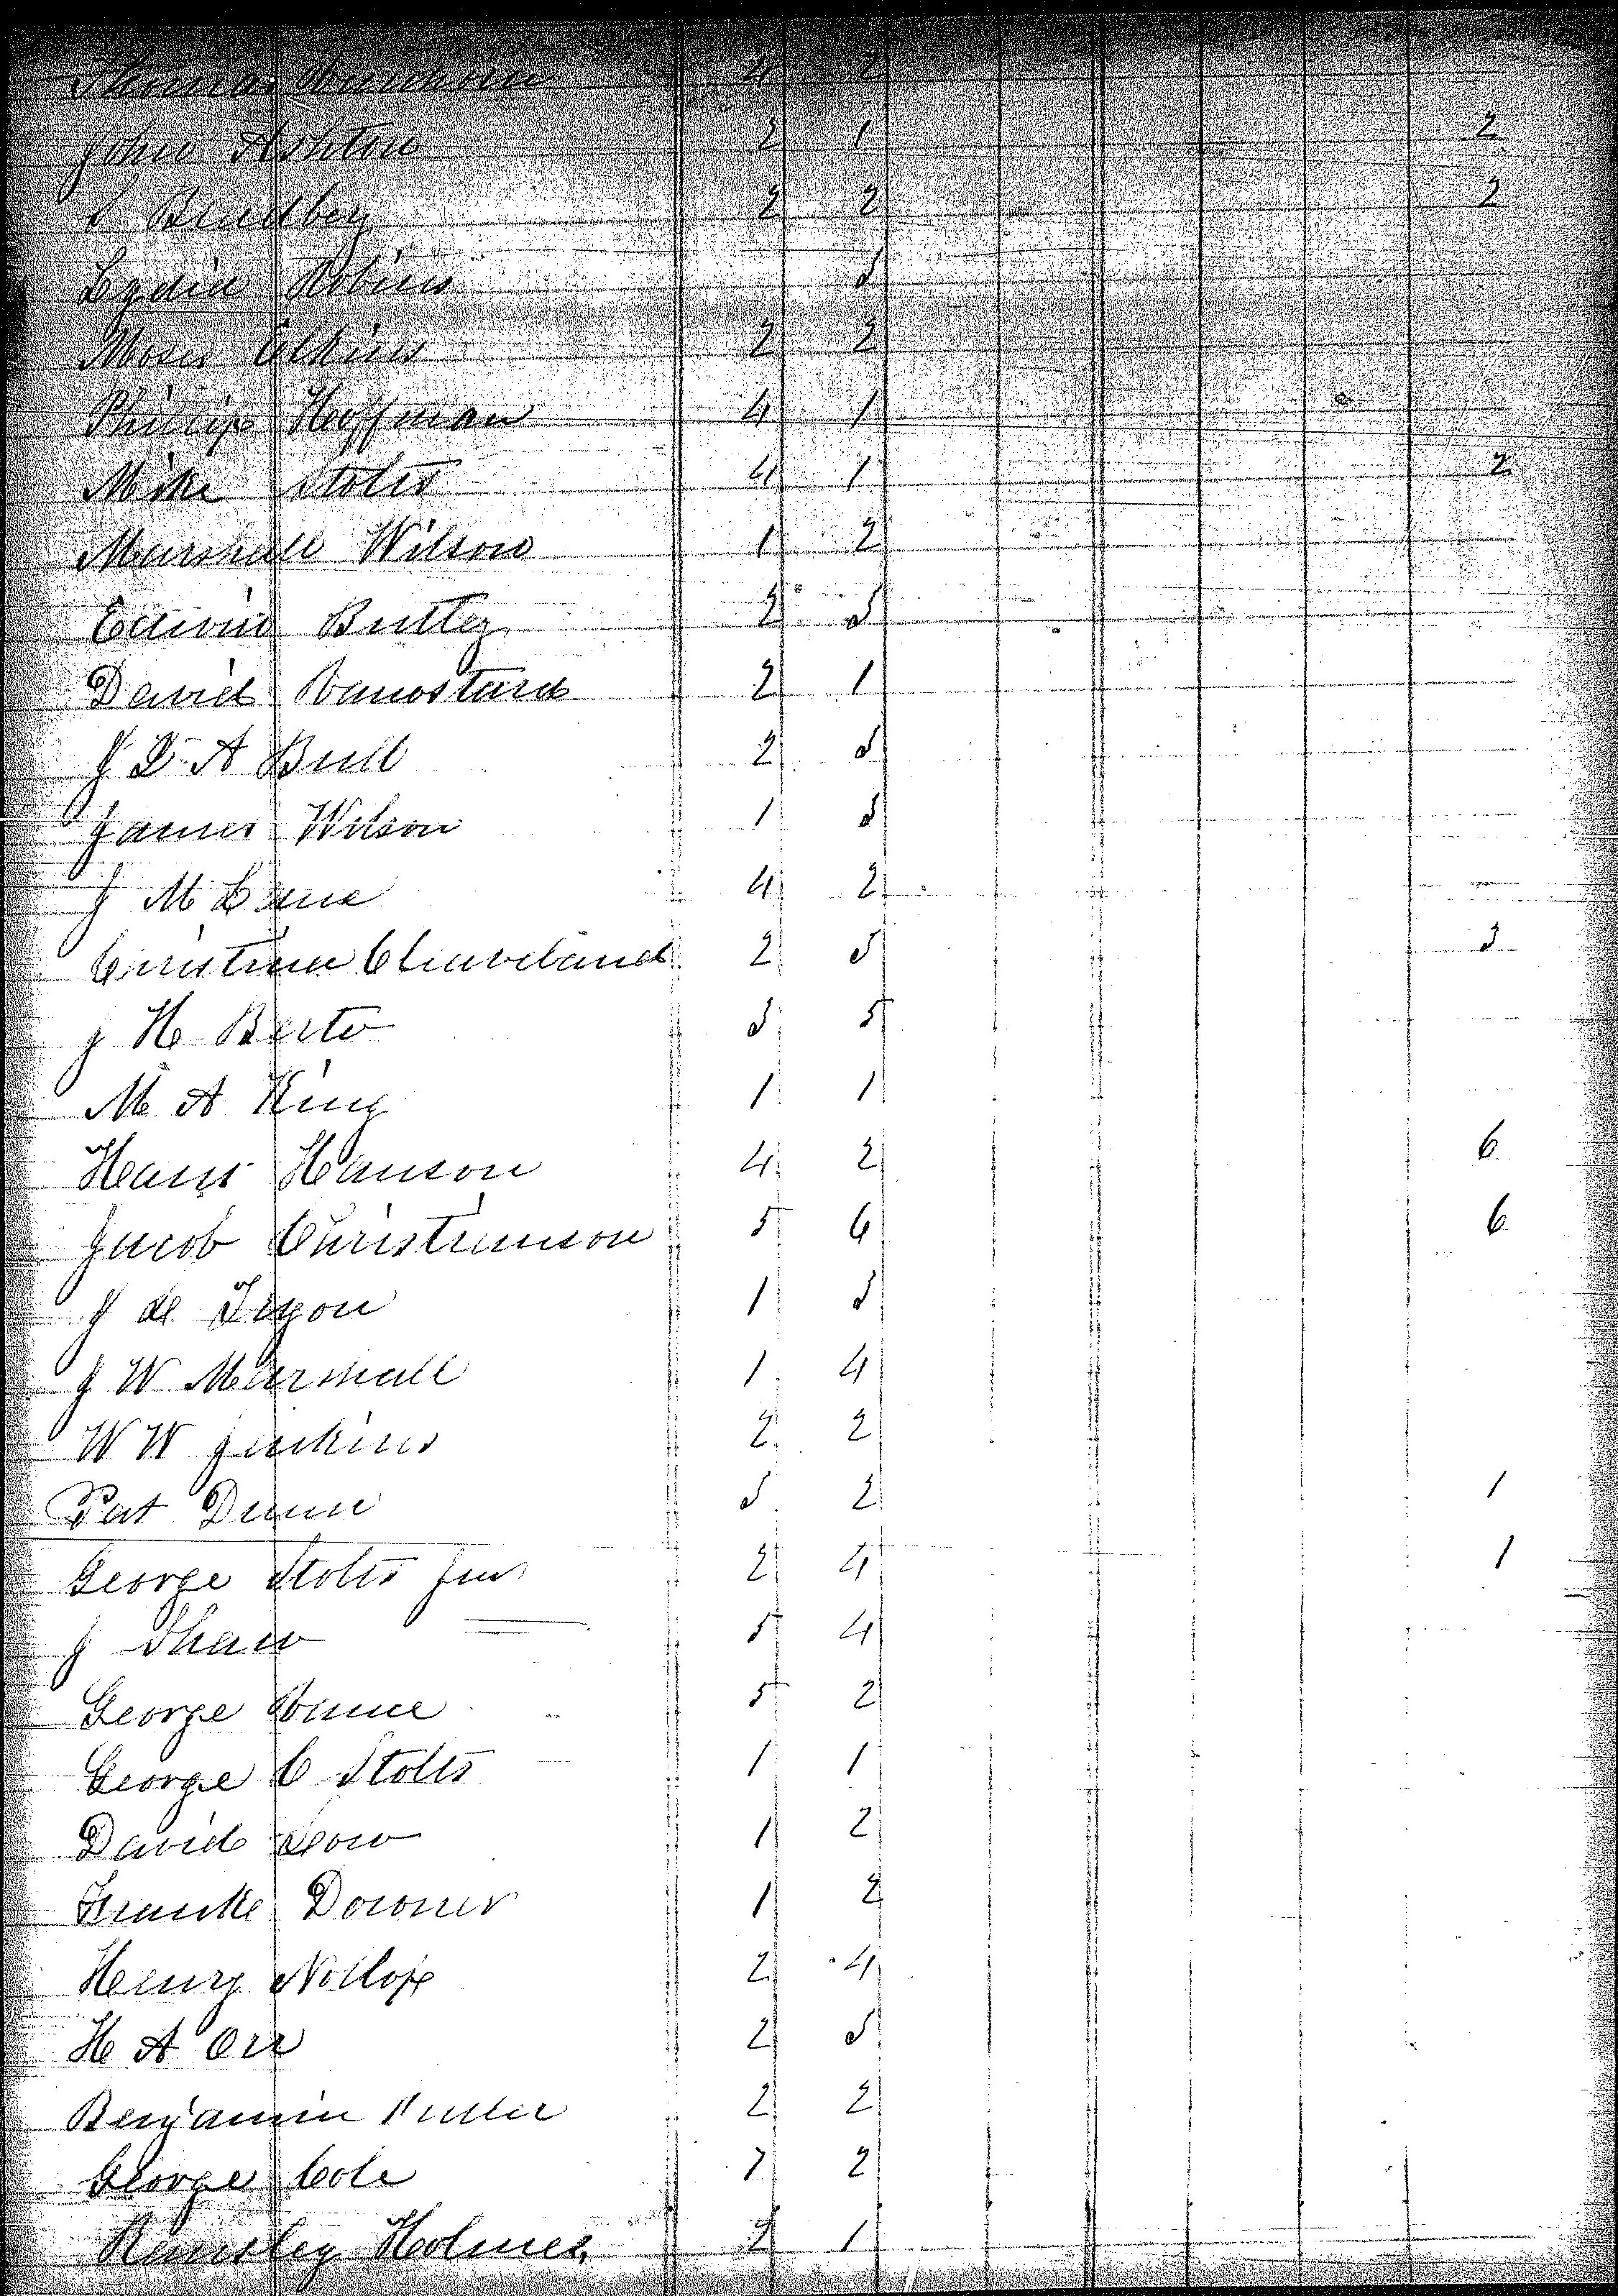 Thomas 4 2
John Ashton 2 1 2
2 2 2
Lydia Robins 3
Moses Elkins 2 2
Phillip Hoffman 4 1
Mike Stolts 4 1 2
Marshall Wilson 1 2
Edwin Butler 2 3
David 2 1
J D A Bull 2 3
James Wilson 1 3
J M Lane 4 2
Christina Cleaveland 2 3 3
J H Berto 3 5
M A King 1 1
Hans Hanson 4 2 6
Jacob Christianson 5 6 6
J de Tryon 1 3
J W Marshall 1 4
W W Jenkins 2 2
Pat Dunn 3 2 1
George Stolts Jun 2 4 1
J Shaw 5 4
George 5 2
George C Stolts 1 1
David Dow 1 2
Franke Downer 1 2
Henry 2 4
H A Orr 2 3
Benjamin 2 2
George Cole 7 2
Holmes 2 1